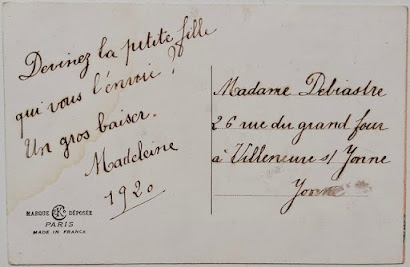 Devinez la petite fille
qui vous l'envoi ?
Un gros baiser.
Madeleine
1920
Madame Debiastre
26 rue du grand four
à Villeneuve s/ Yonne
Yonne
MARQUE EKC DÉPOSÉE
PARIS
MADE IN FRANCE